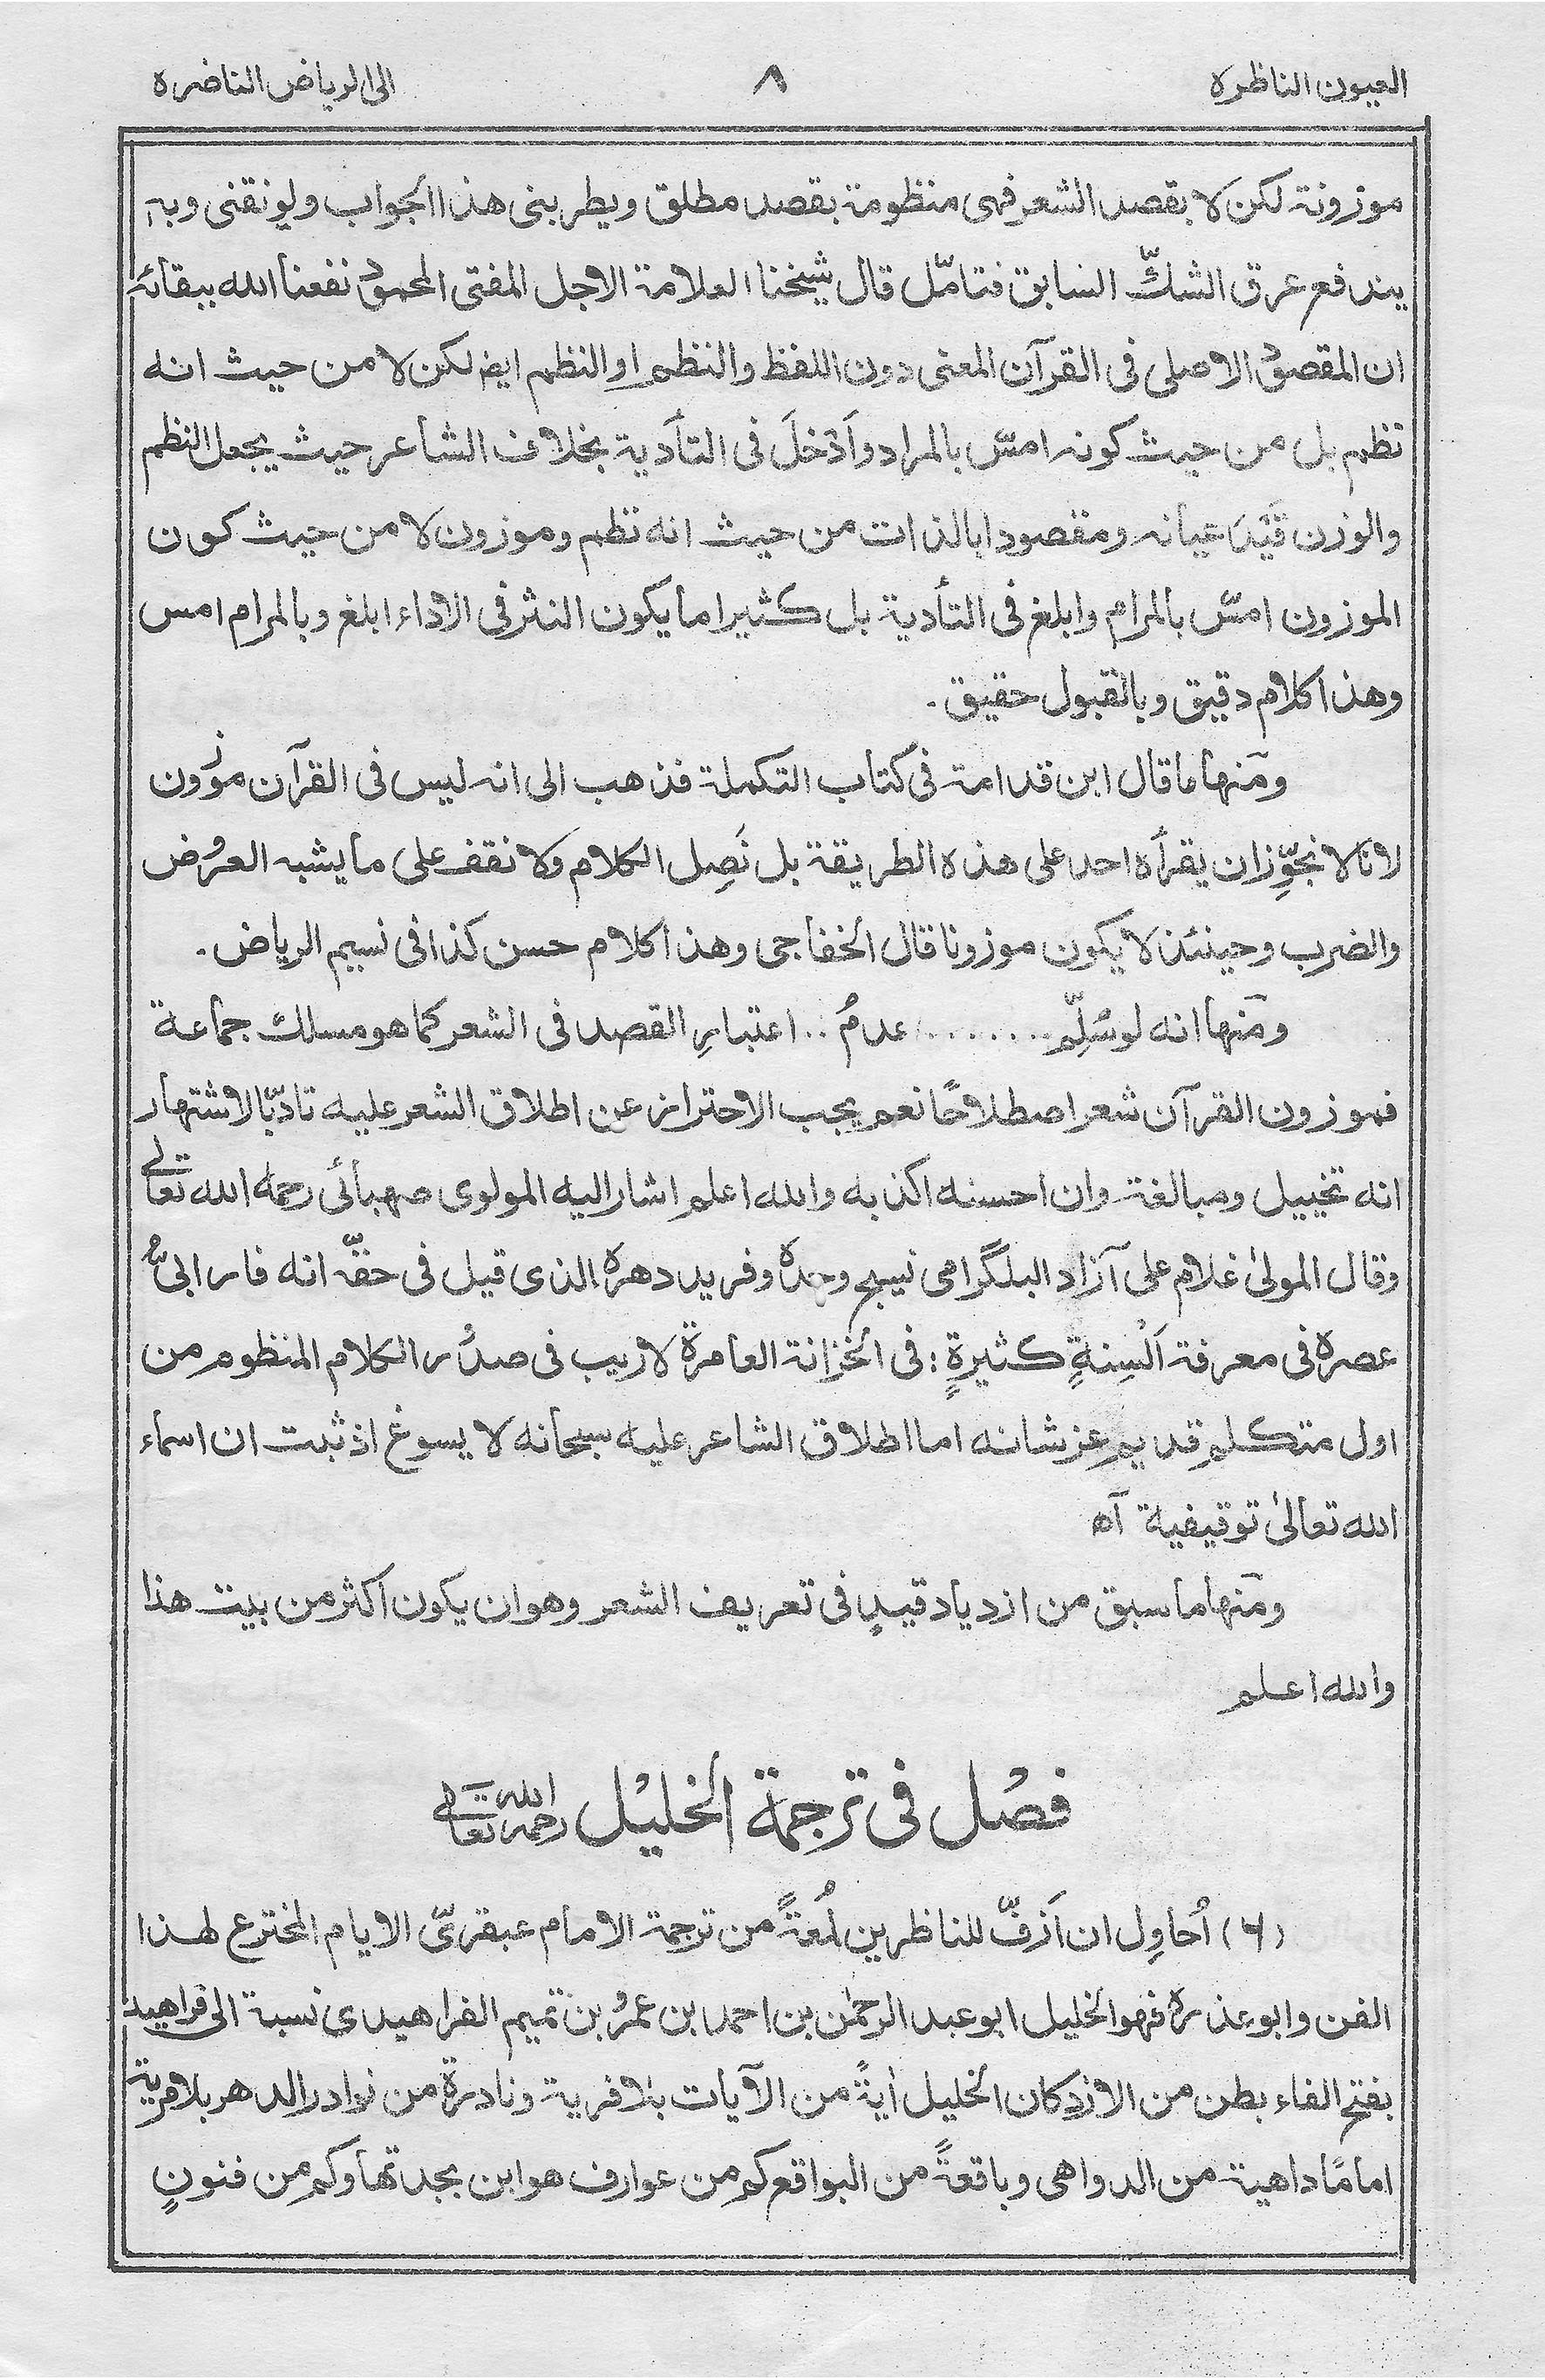 العيون الناظرة ٨ الى الرياض الناضرة
موزونة لكن لا بقصد الشعر فهى منظومة بقصد مطلق ويطربنى هذا الجواب ويونقنى وبه
يندفع عرق الشكّ السابق فتامّل قال شيخنا العلامة الاجل المفتى المحمود نفعنا الله ببقائه
ان المقصود الاصلى فى القرآن المعنى دون اللفظ والنظم او النظم ايضا لكن لا من حيث انه
نظم بل من حيث كونه امسّ بالمراد واَدْخلَ فى التأدية بخلاف الشاعر حيث يجعل النظم
والوزن قَيْدَ عيانه ومقصودا بالذات من حيث انه نظم وموزون لا من حيث كون
الموزون امسّ بالمرام وابلغ فى التأدية بل كثيرا ما يكون النثر فى الاداء ابلغ وبالمرام امس
وهذا كلام دقيق وبالقبول حقيق ـ
ومَنها ما قال ابن قدامة فى كتاب التكملة فذهب الى انه ليس فى القرآن موزون
لانا لا نجوِّز ان يقرأه احد على هذه الطريقة بل نَصِل الكلام ولا نقف على ما يشبه العروض
والضرب وحينئذ لا يكون موزونا قال الخفاجى وهذا كلام حسن كذا فى نسيم الرياض ـ
ومَنها انه لو سُلِّم ........ عدمُ .. اعتبارِ القصد فى الشعر كما هو مسلك جماعة
فموزون القرآن شعر اصطلاحًا نعم يجب الاحتراز عن اطلاق الشعر عليه تادّبا لاشتهار
انه تخييل ومبالغة وان احسنه اكذبه والله اعلم اشار اليه المولوى صهبائى رحمه الله تعالى
وقال المولىٰ غلام على آزاد البلگرامى نسيج وحده وفريد دهره الذى قيل فى حقّه انه فارابىُّ
عصره فى معرفة اَلْسِنةٍ كثيرةٍ : فى الخزانة العامرة لا ريب فى صدُور الكلام المنظوم من
اول متكلم قديمٍ عز شانه اما اطلاق الشاعر عليه سبحانه لا يسوغ اذ ثبت ان اسماء
الله تعالىٰ توقيفية آه
ومَنها ما سبق من ازدياد قيدٍ فى تعريف الشعر وهو ان يكون اكثر من بيت هذا
والله اعلم
فصْل فى ترجمة الخليْل رحمه الله تعالى
(٦) اُحاوِل ان اَزفّ للناظرين لُمعَةً من ترجمة الامام عبقرىّ الايام المخترع لهذا
الفن وابو عذره فهو الخليل ابو عبد الرحمٰن بن احمد بن عمرو بن تميم الفراهيدى نسبة الى فراهيد
بفتح الفاء بطن من الازد كان الخليل اٰيةً من الآيات بلا فرية ونادرة من نوادر الدهر بلا مرية
امامًا داهية من الدواهى وباقعةً من البواقع كم من عوارف هو ابن بجدتها وكم من فنونٍ